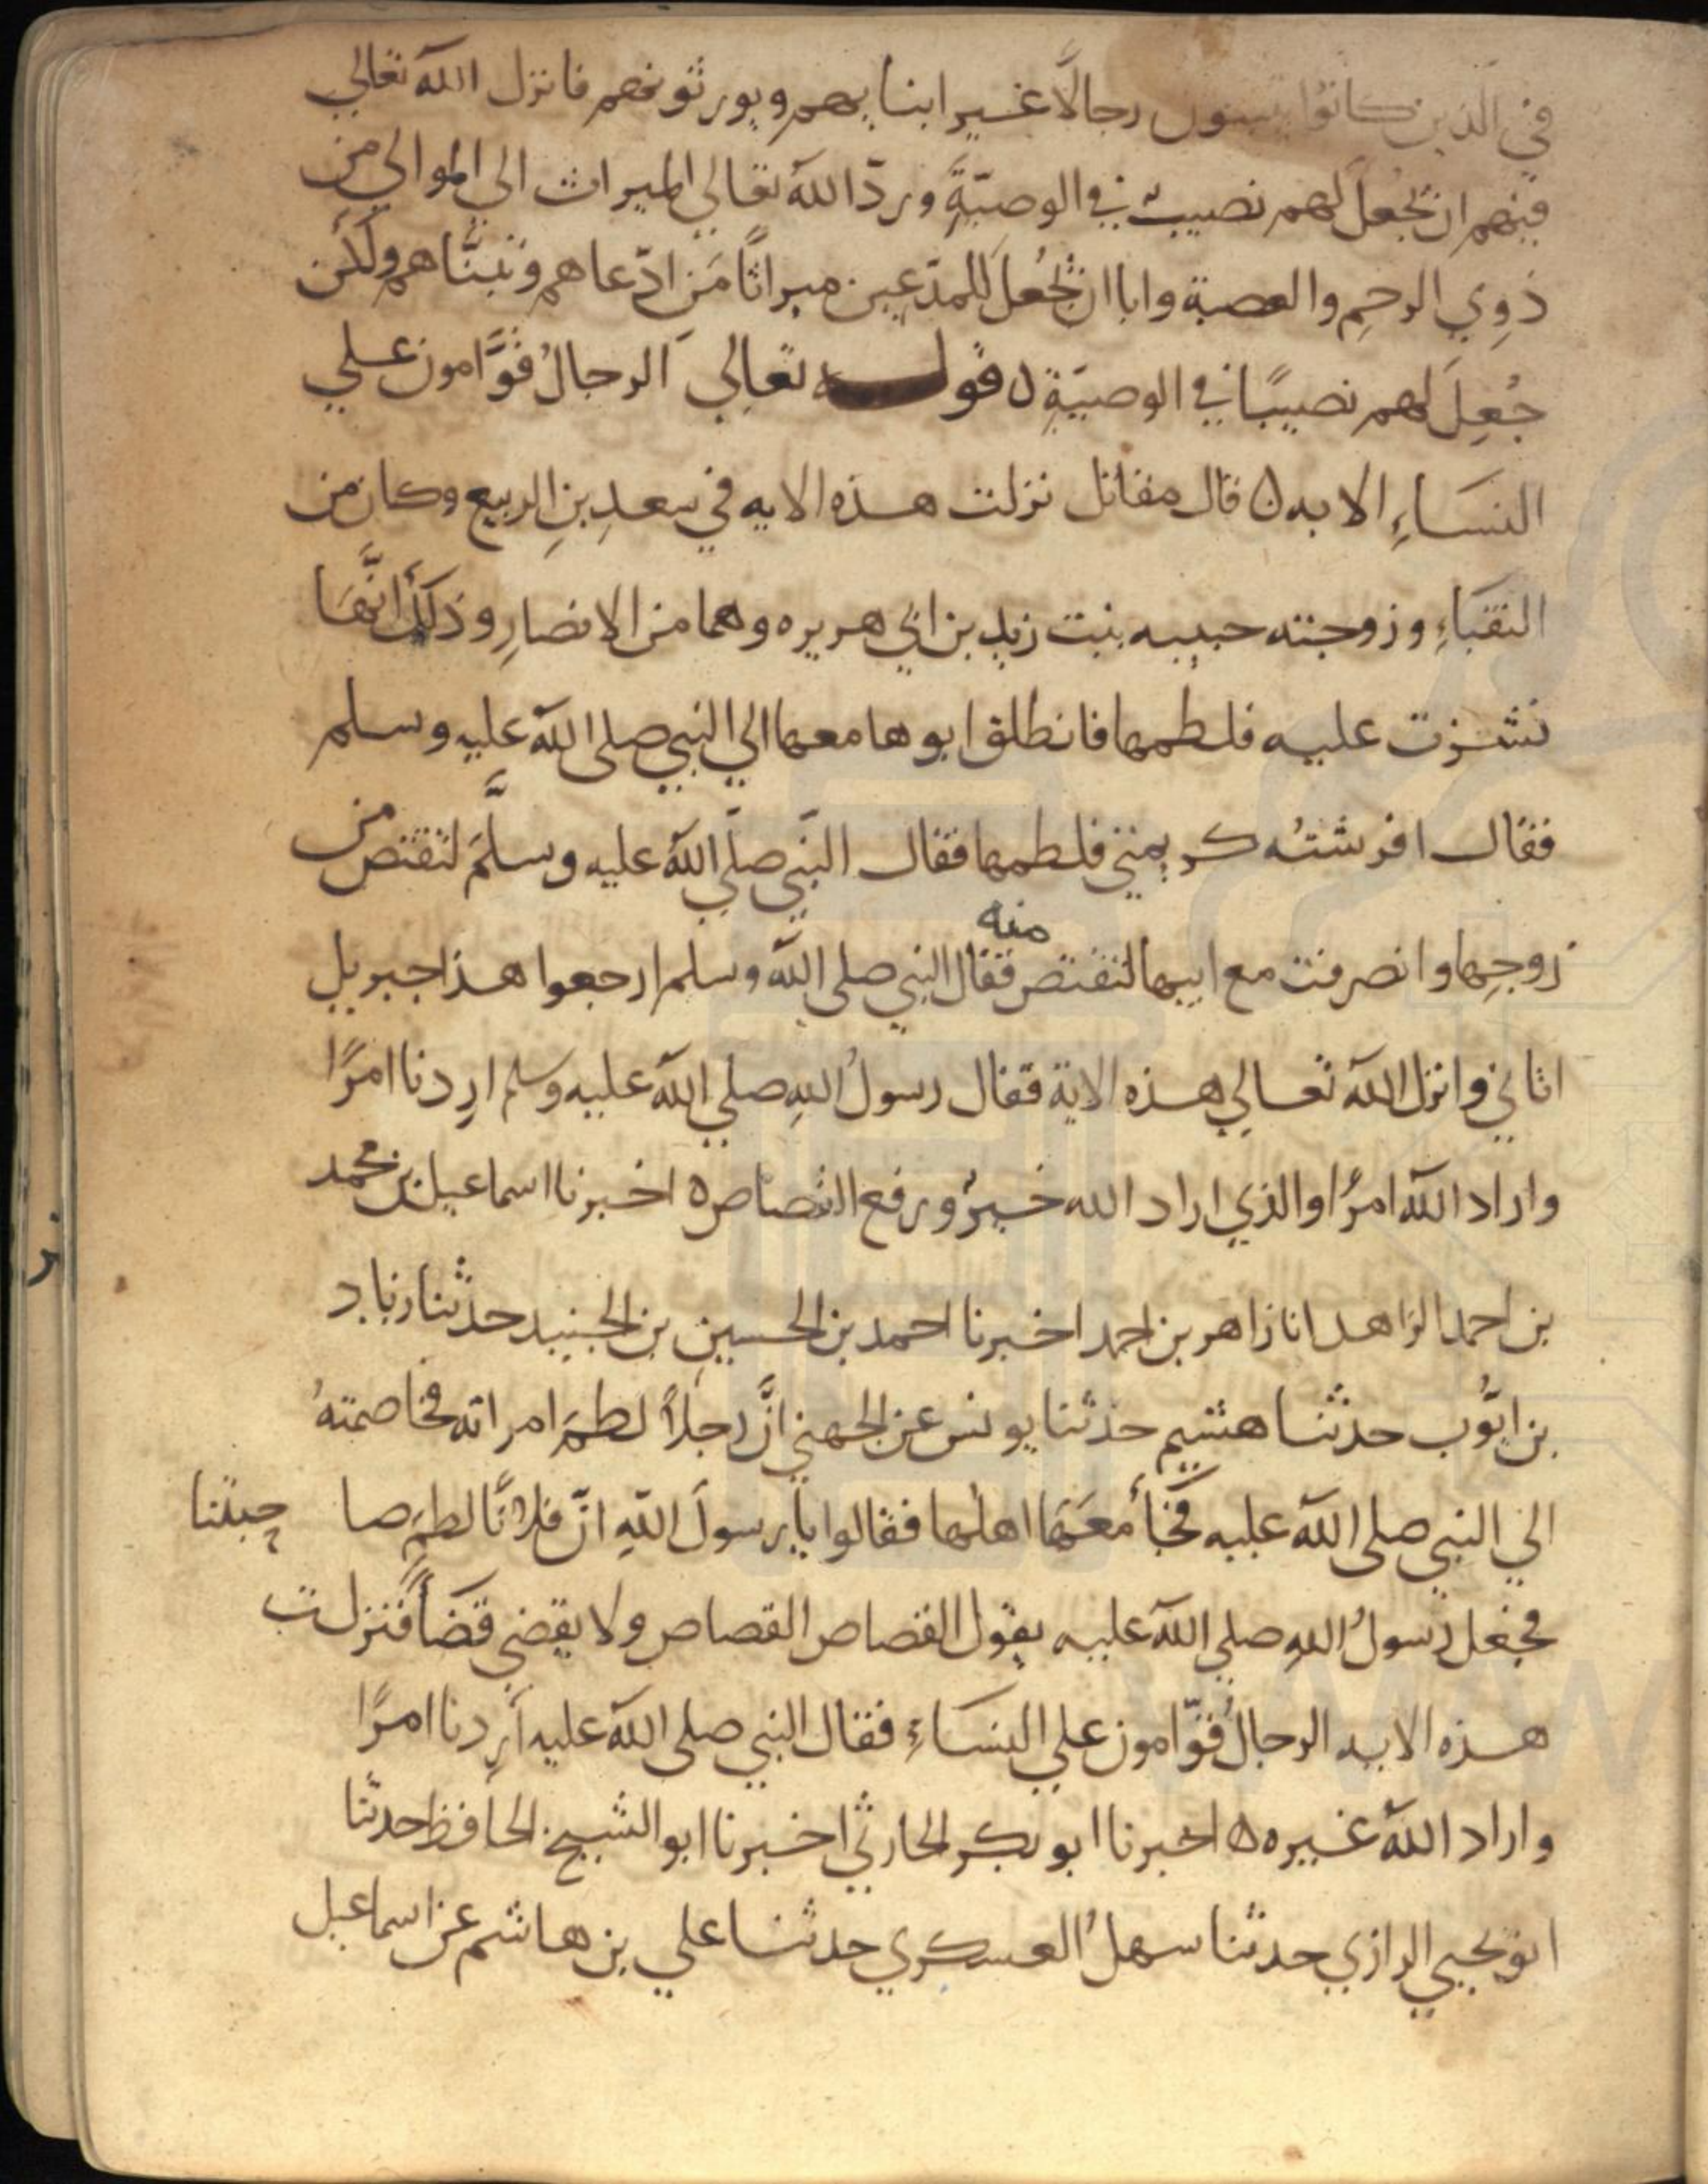 في الذين كانوا يتبنون رجالًا غير ابنايهم ويورثونهم فانزل الله تعالي
فيهم ان تجعل لهم نصيب في الوصيّة وردّ الله تعالي الميراث الي الموالي من
ذوِي الرحمِ والعصبة وابا ان تجُعلَ للمدّعين ميراثًا مَن ادّعاهم وتبنّاهم ولكن
جُعِلَ لهم نصيبًا في الوصيّةِ ه قوله تعالي الرجالُ قوَّامون علي
النسَاءِ الايه ه قال مقاتل نزلت هذه الايه في سعدِ بنِ الربيع وكان من
النقبَاءِ وزوجته حبيبه بنت زيد بن ابي هريره وهما من الانصارِ وذلك انَّهَا
نشزت عليه فلطمها فانطلق ابوها معها الي النبي صلى الله عليه وسلم
فقال افرشتُه كريمتي فلطمها فقال النّبي صلّي الله عليه وسلَّمَ لتقتص من
زوجِها وانصرفت مع ابيها لتقتص منه فقال النبي صلى الله وسلم ارجعوا هذا جبريل
اتاني وانزل الله تعالي هذه الاية فقال رسولُ اللهِ صلي الله عليه وسلم اردنا امرًا
واراد الله امرًا والذي اراد الله خيرٌ ورفع القصاص ه اخبرنا اسماعيل بن محمد
بن احمد الزاهد انا زاهر بن احمد اخبرنا احمد بن الحسينِ بن الجنيد حدثنا زياد
بن ايّوب حدثنا هشيم حدثنا يونس عن الجهني انَّ رجلاً لطمَ امراته فخاصمتهُ
الي النبي صلى الله عليه فجأ معَهَا اهلها فقالوا يا رسولَ اللهِ انّ فلانًا لطمَ صاحبتنا
فجعل رسولُ اللهِ صلي الله عليه يقول القصاص القصاص ولا يقضي قضَاً فنزلت
هذه الايه الرجالُ قوّامون علي النسَاءِ فقال النبي صلى الله عليه أردنا امرًا
واراد الله غيره ه اخبرنا ابو بكر الحارثي اخبرنا ابو الشيخ الحافظ حدثنا
ابو يحيي الرازي حدثنا سهلُ العسكري حدثنا علي بن هاشم عن اسماعيل